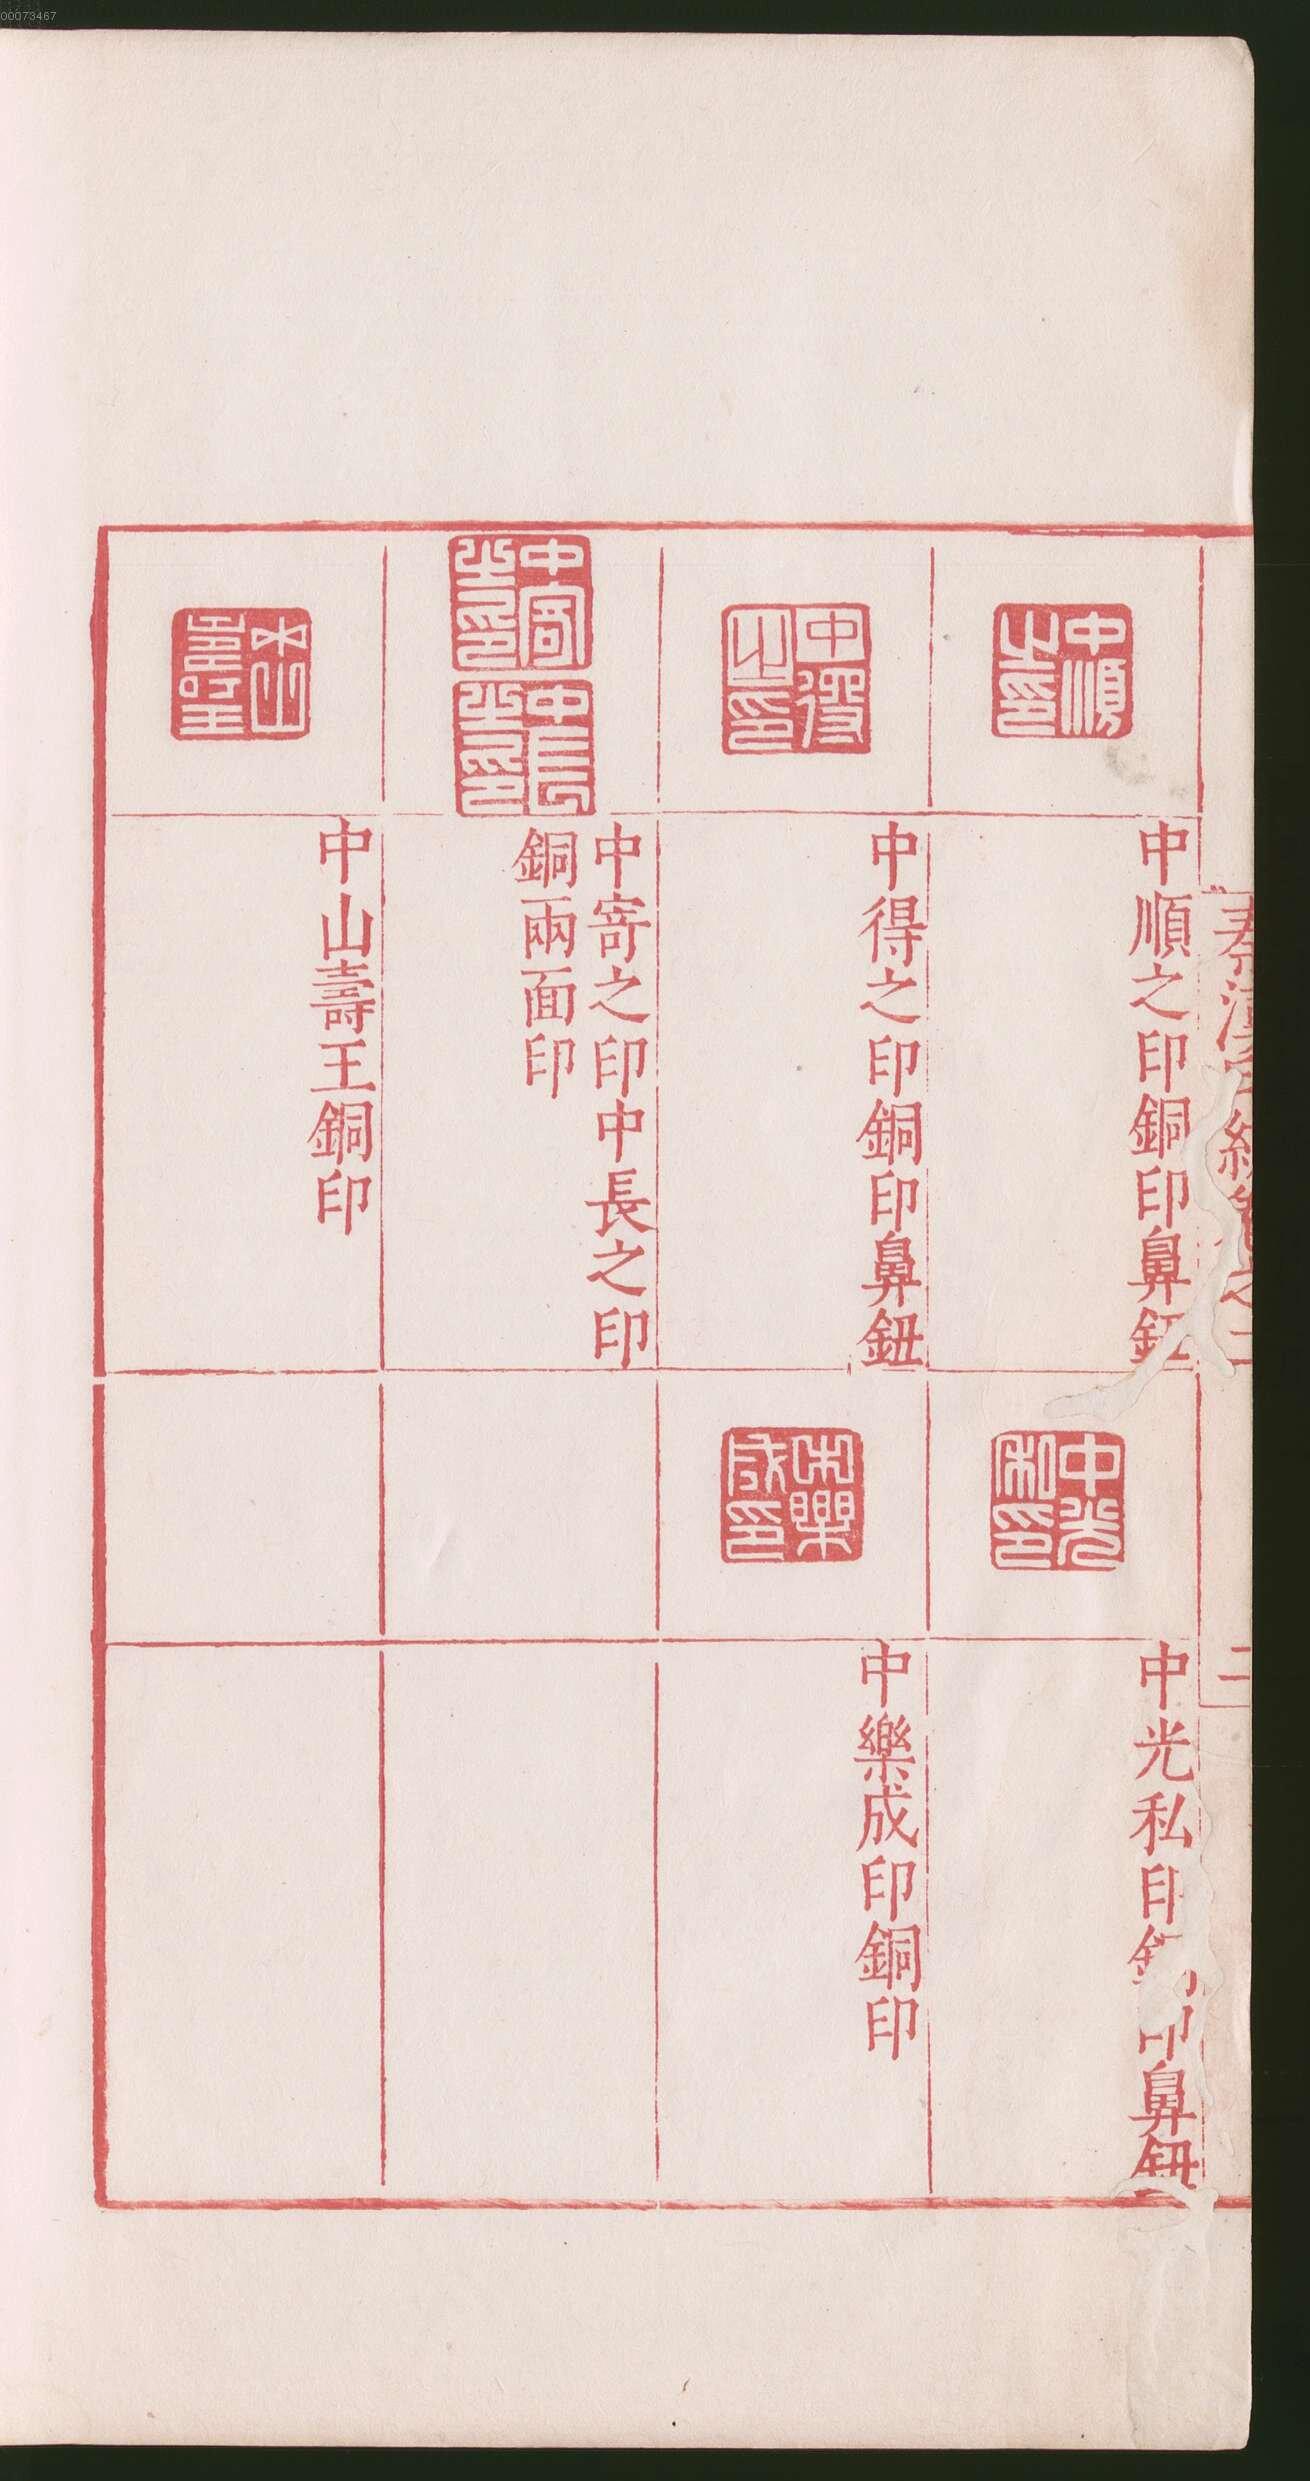 00073467
中順之印
中順之印銅印鼻鈕
中得之印
中得之印銅印鼻鈕
中寄之印
中長之印
中寄之印中長之印
銅兩面印
中山壽王
中山壽王銅印
中光私印
中光私印銅印鼻鈕
中樂成印
中樂成印銅印
二